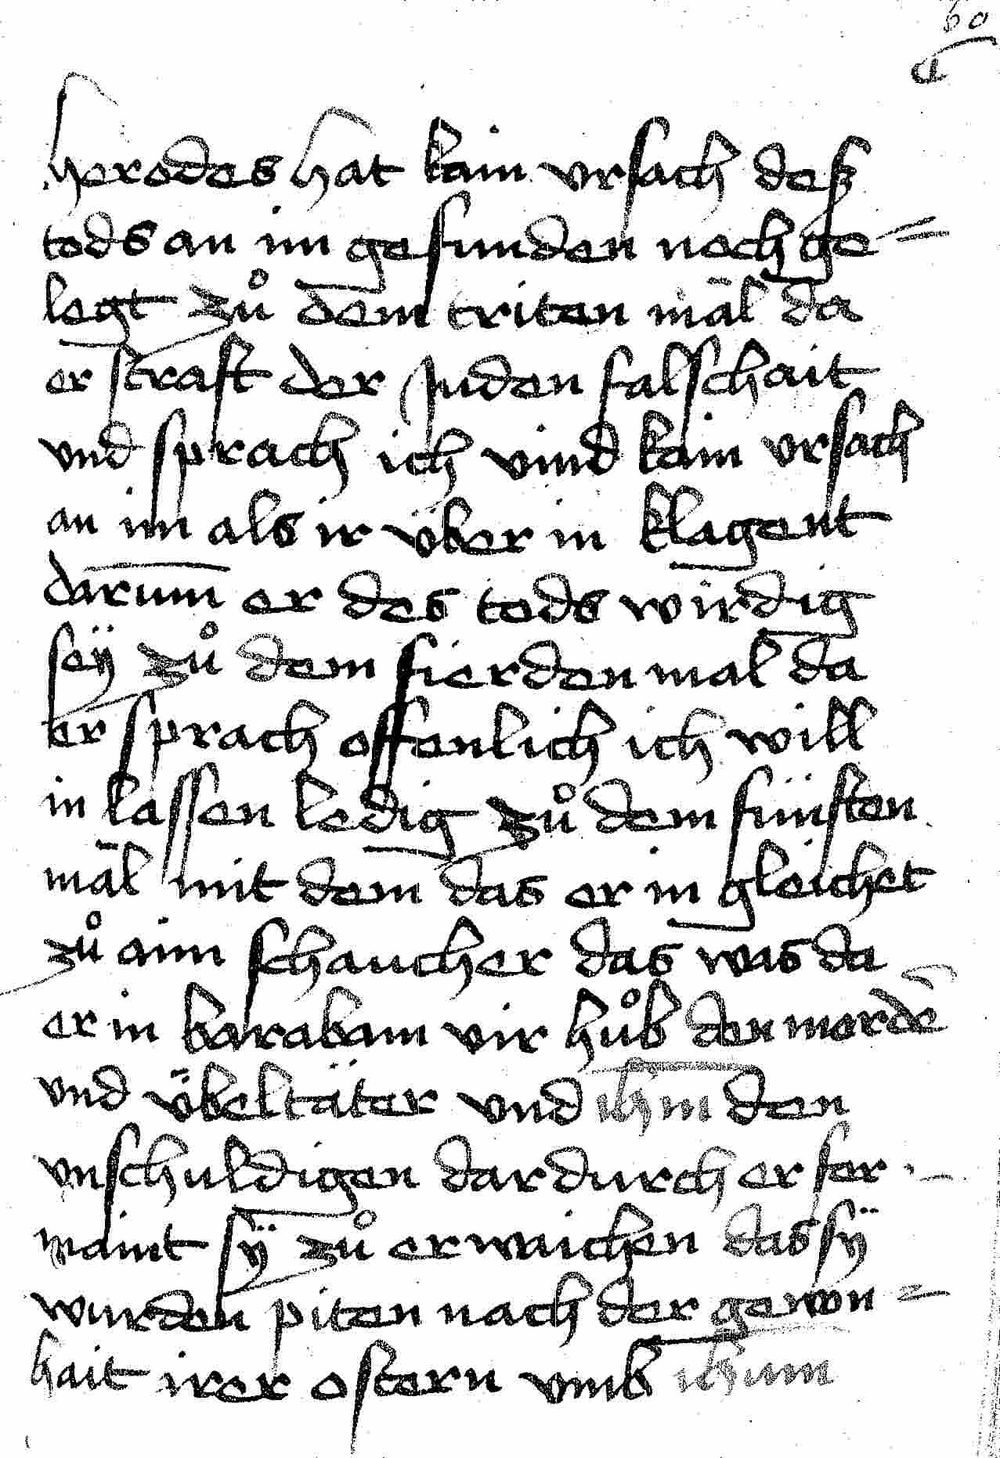 60
herodes hat kain vrsach deß
tods an im gefunden noch ge=
legt zů dem triten māl da
er straft der Juden falschait
vnd sprach ich vind kain vrsach
an im als ir vber in klagent
darum̄ er des tods wirdig
seÿ zů dem fierden mal da
er sprach offenlich ich will
in lassen ledig zů dem fünften
māl mit dem das er in gleichet
zů aim schaucher das was da
er in barabam vir hůb den morde᷑
vnd v̈beltäter vnd ihm den
vnschuldigen dardurch er fer-
maint sÿ zů erwaichen das sÿ
wurden piten nach der gewon=
hait irer ostern vmb ihum